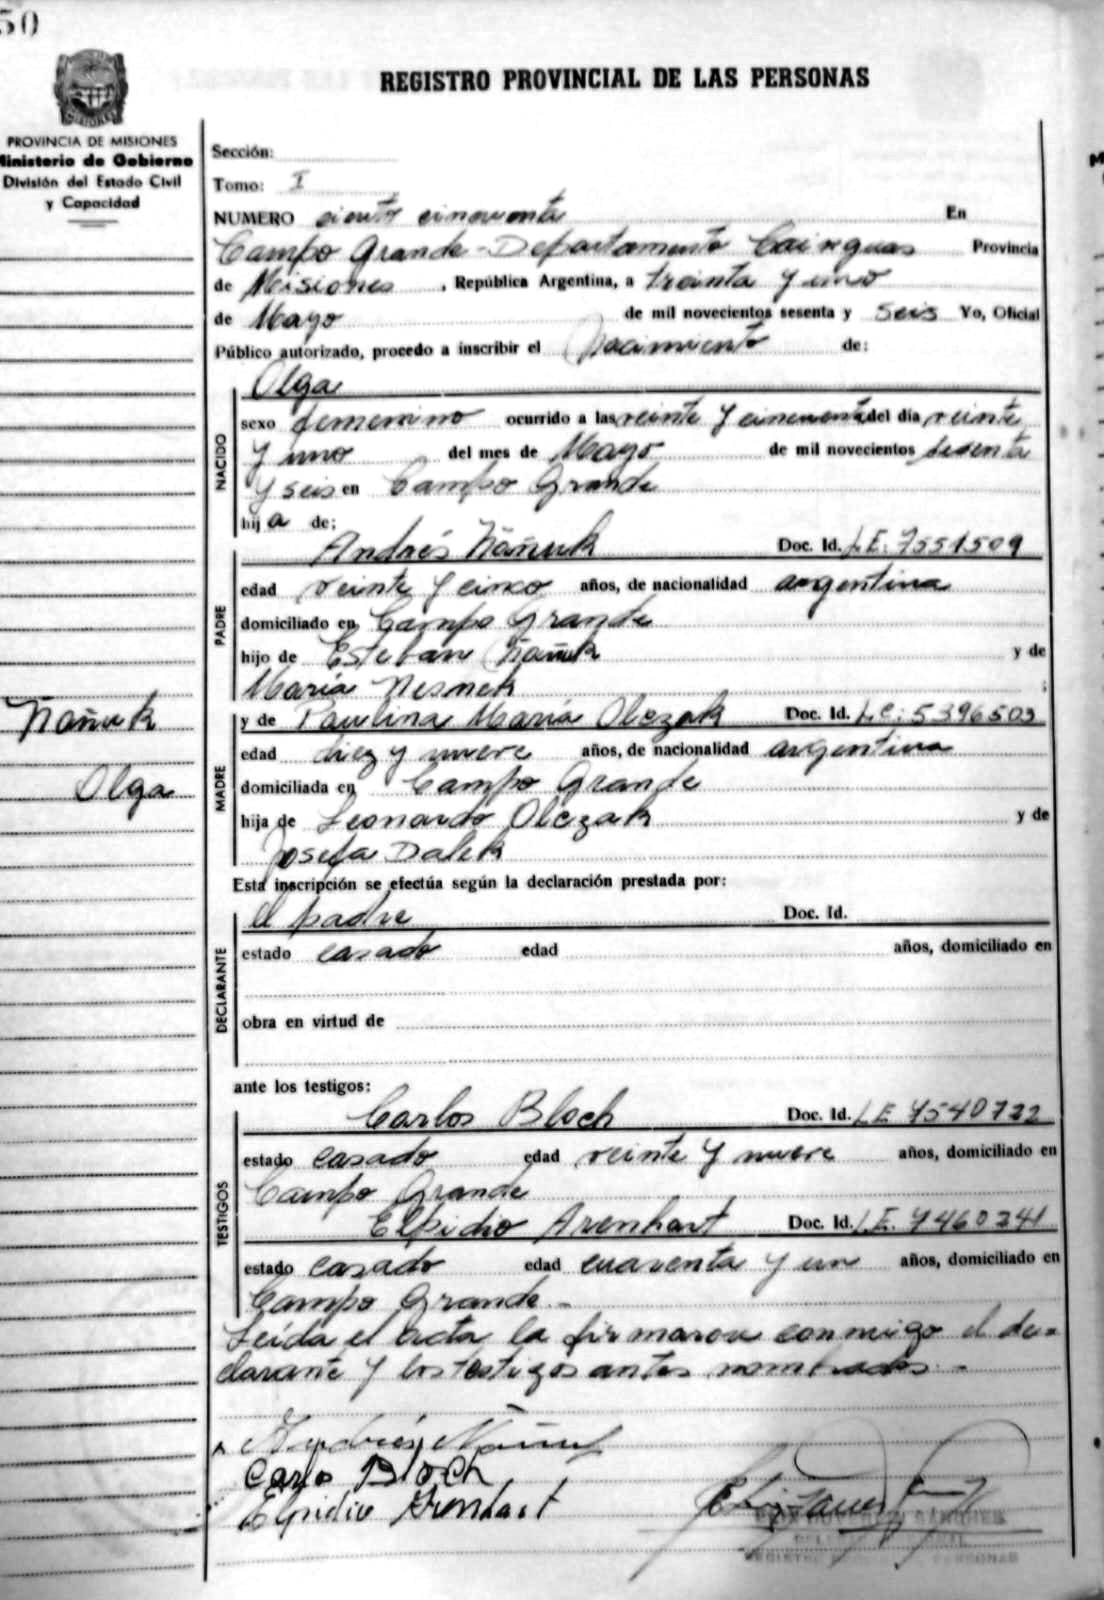 50
REGISTRO PROVINCIAL DE LAS PERSONAS
PROVINCIA DE MISIONES
Ministerio de Gobierno
División del Estado Civil
y Capacidad
Sección:
Tomo: I
NUMERO ciento cincuenta En
Campo Grande - Departamento Cainguas Provincia
de Misiones, República Argentina, a treinta y uno
de Mayo de mil novecientos sesenta y seis Yo, Oficial
Público autorizado, procedo a inscribir el Nacimiento de:
Olga
NACIDO
sexo femenino ocurrido a las veinte y cincuenta del día veinte
y uno del mes de Mayo de mil novecientos sesenta
y seis en Campo Grande
hija de:
Andrés Ñañuk Doc. Id. L.E: 7551509
PADRE
edad veinte y cinco años, de nacionalidad argentina
domiciliado en Campo Grande
hijo de Esteban Ñañuk y de
María Nesnek ;
Ñañuk
Olga
y de Paulina María Olczak Doc. Id. L.C: 5396503
MADRE
edad diez y nueve años, de nacionalidad argentina
domiciliada en Campo Grande
hija de Leonardo Olczak y de
Josefa Dalek
Esta inscripción se efectúa según la declaración prestada por:
el padre Doc. Id.
DECLARANTE
estado casado edad años, domiciliado en
obra en virtud de
ante los testigos:
Carlos Bloch Doc. Id. L.E 7540722
TESTIGOS
estado casado edad veinte y nueve años, domiciliado en
Campo Grande
Elpidio Arenhart Doc. Id. L.E. 7460241
estado casado edad cuarenta y un años, domiciliado en
Campo Grande -
Leída el acta la firmaron conmigo el de-
clarante y los testigos antes nombrados. -
Andrés Ñañuk
Carlo Bloch
Elpidio Arenhart
SANCHEZ
PERSONAS